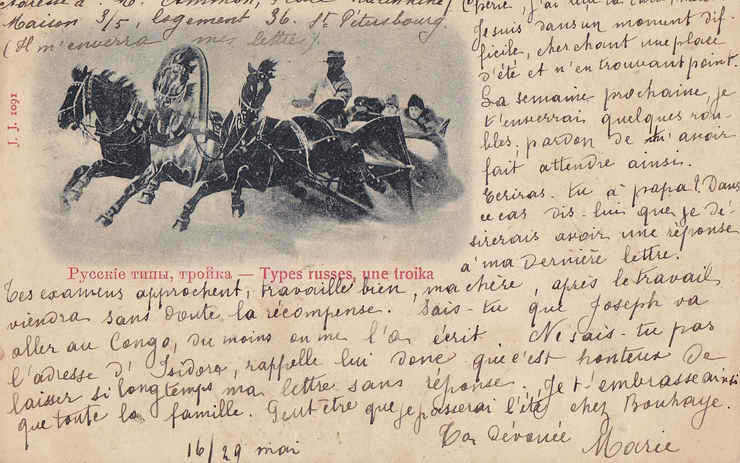 Maison 3/5, logement 36. St Pétersbourg.
(Il m'enverra mes lettre).
J. J. 1091
j'ai
Je suis dans un moment dif-
ficile, cherchant une place
d'été et n'en trouvant point.
La semaine prochaine, je
t'enverrais quelques rou-
bles, pardon de t'avoir
fait attendre ainsi.
Ecriras-tu à papa? Dans
ce cas dis-lui que je dé-
sirerais avoir une réponse
à ma dernière lettre.
Русскіе типы, тройка — Types russes, une troika
Tes examens approchent, travaille bien, ma chère, après le travail
viendra sans doute la récompense. Sais-tu que Joseph va
aller au Congo, du moins on me l'a écrit. Ne sais-tu pas
l'adresse d'Isidore, rappelle lui donc que c'est honteux de
laisser si longtemps ma lettre sans réponse. Je t'embrasse ainsi
que toute la famille. Peut être que je passerai l'été chez Bouhaye.
16/29 mai
Ta dévouée
Marie